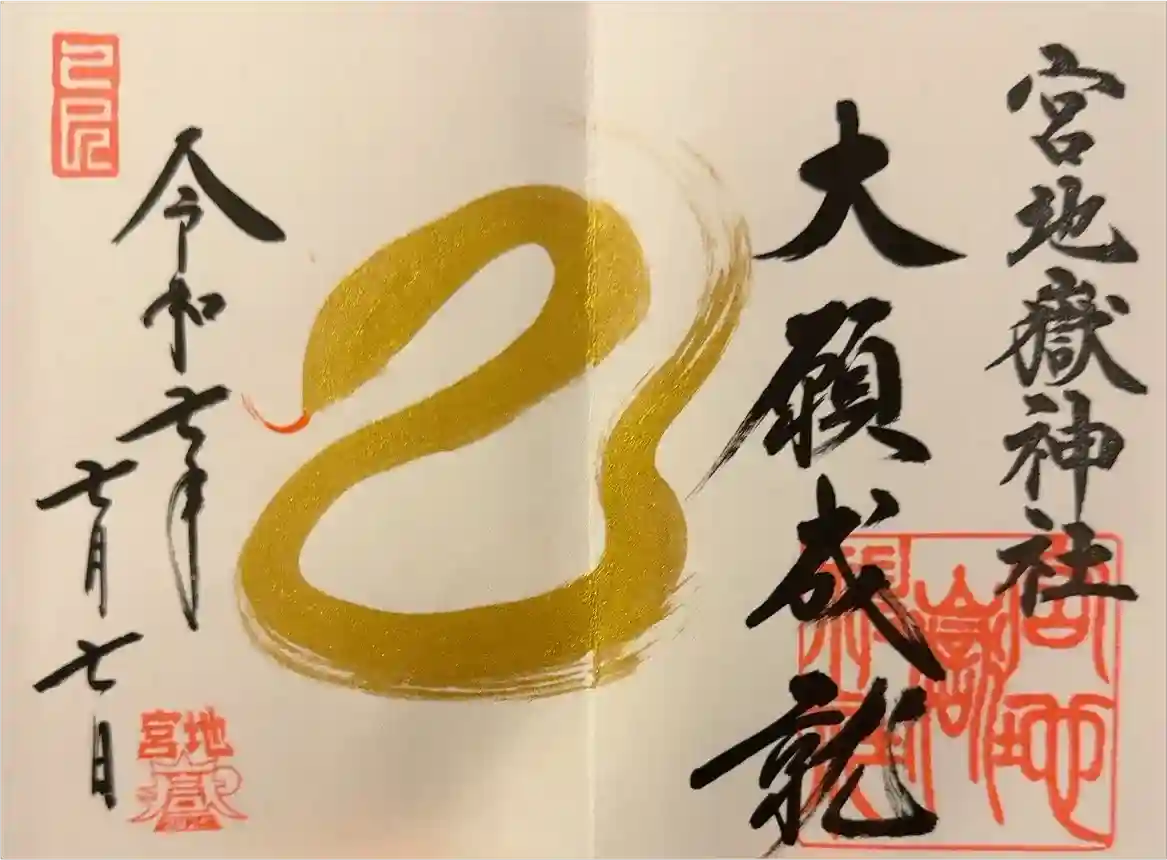 宮地嶽神社
大願成就
令和七年
七月七日
己巳
宮地嶽神社
宮地嶽